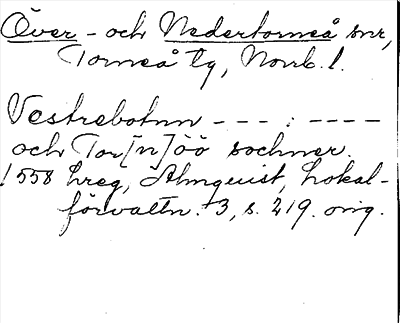 Över- och Nedertorneå snr,
Torneå tg, Norrb. l.
Vestrebotnn --- : ----
och Tor[n]öö sochner.
1558 hreg, Almquist, Lokal-
förvaltn. 3, s. 219. orig.